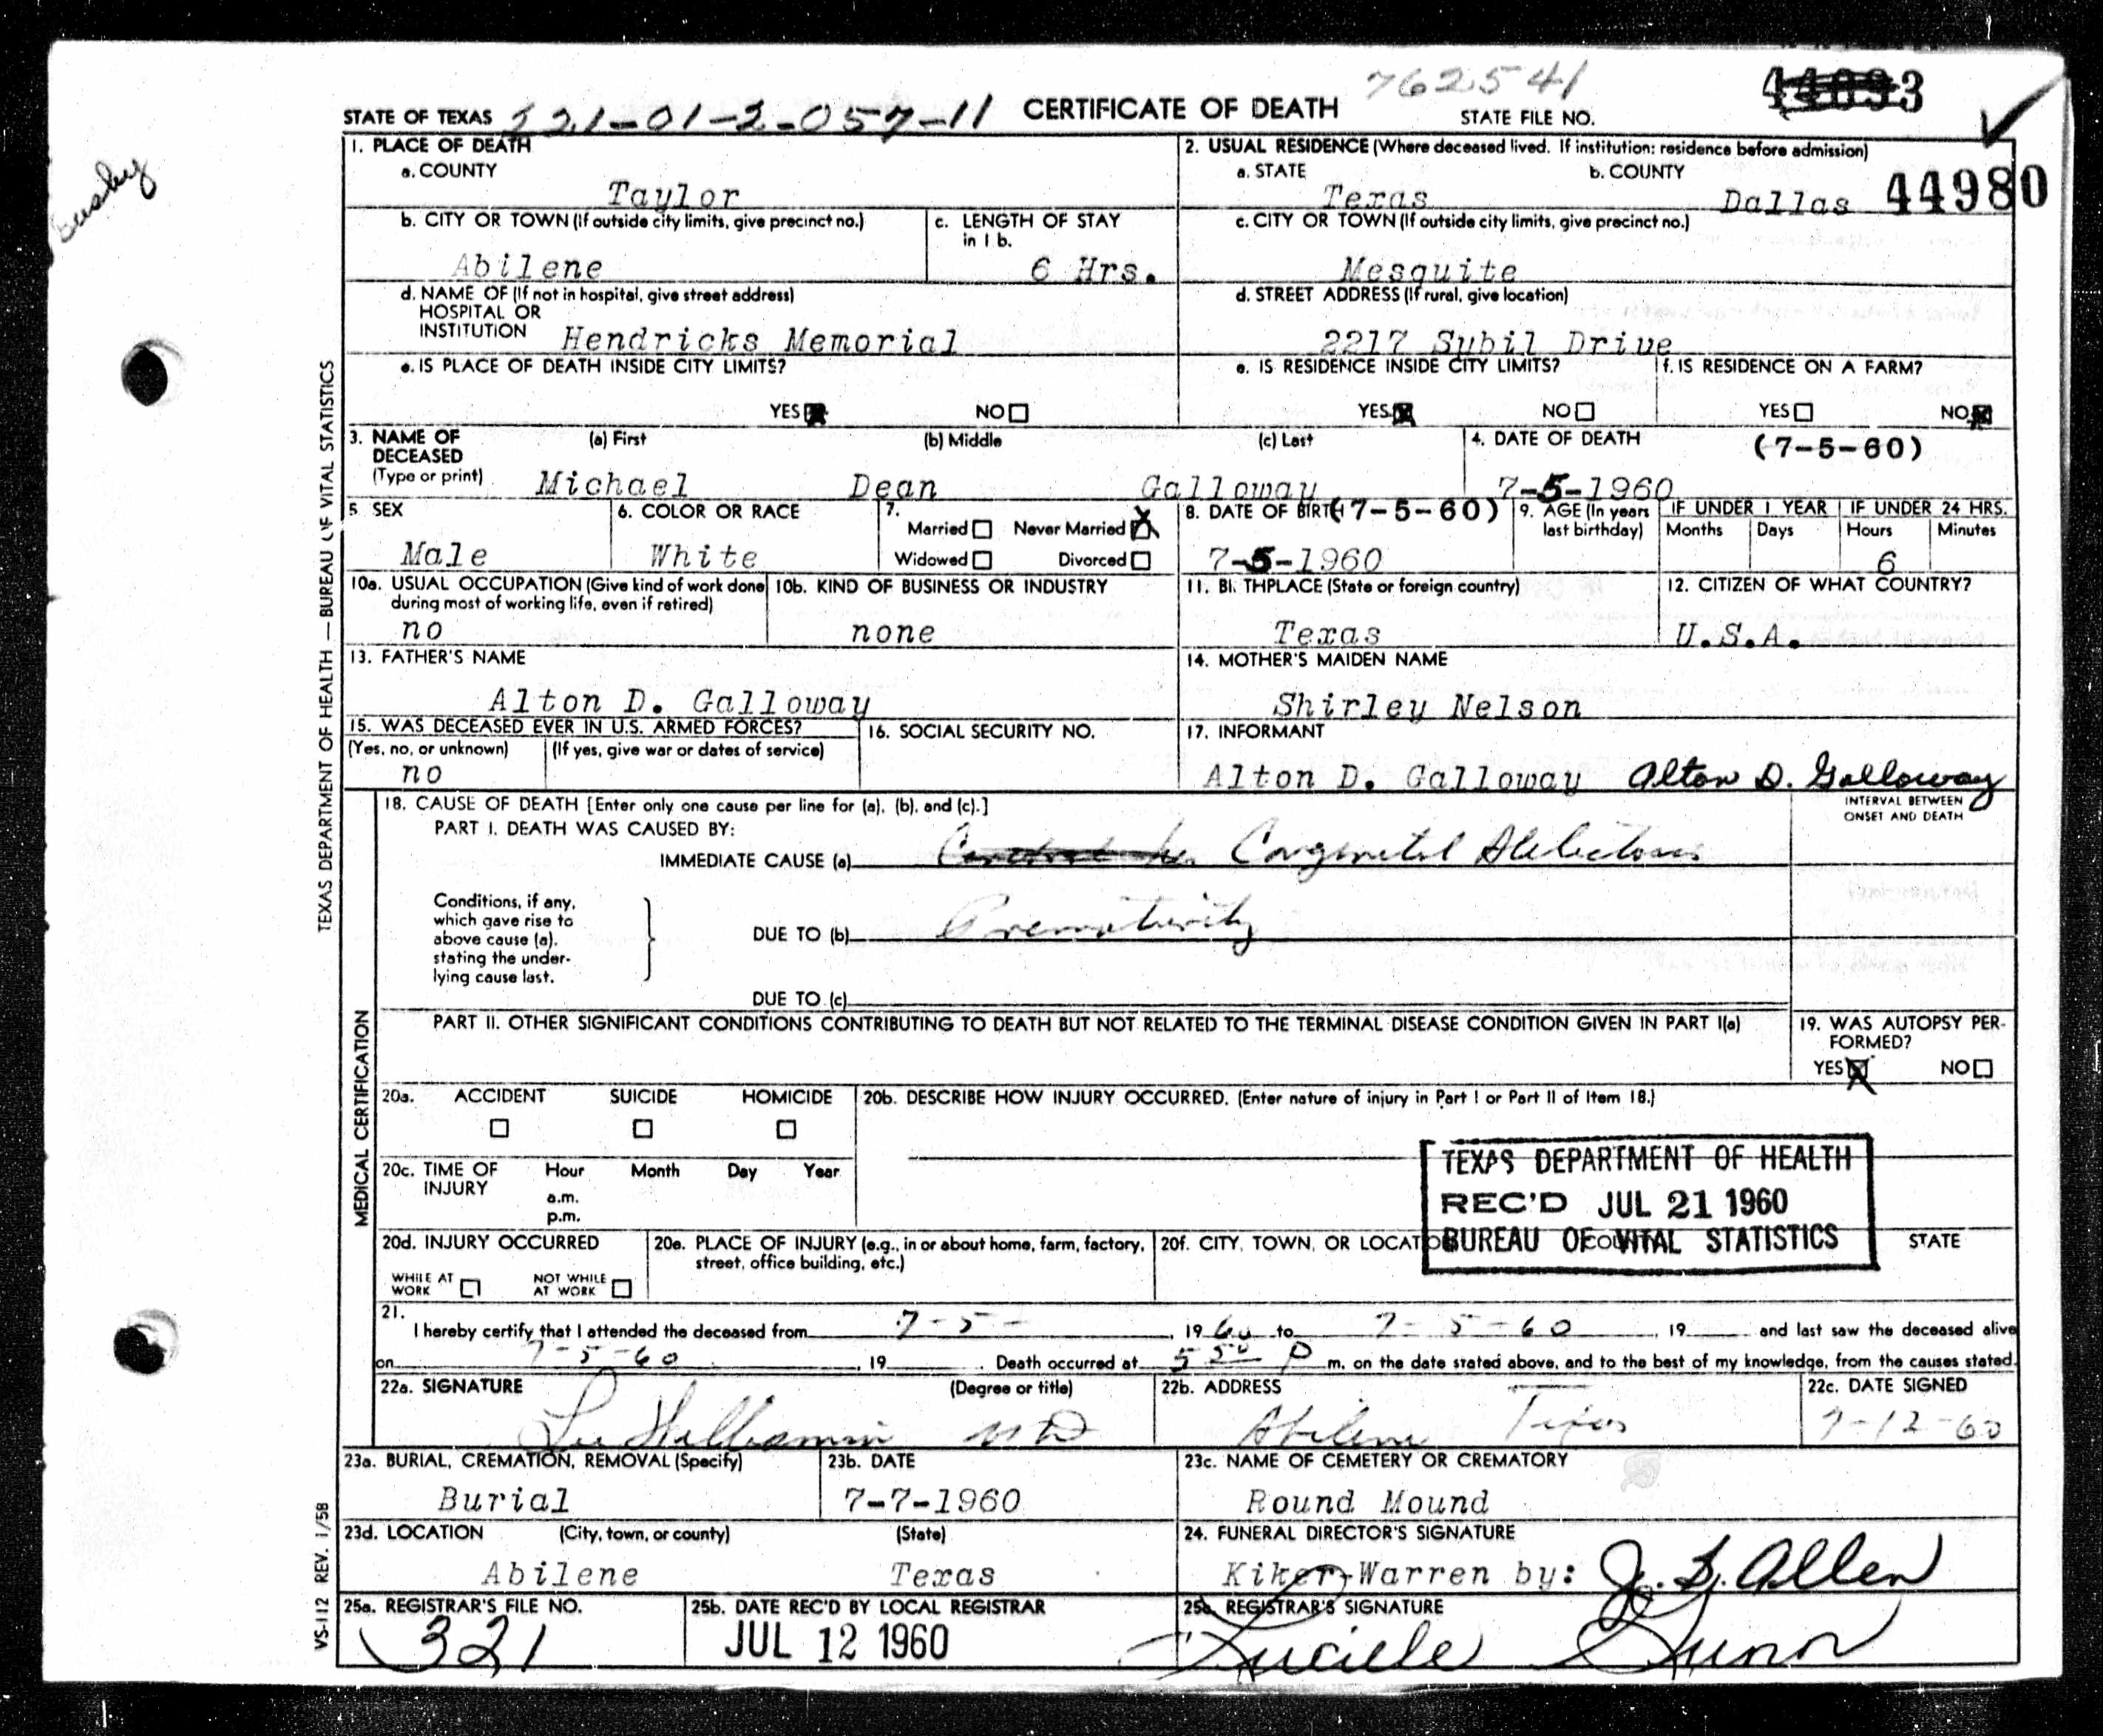 762541
44093
STATE OF TEXAS 221-01-2-057-11 CERTIFICATE OF DEATH STATE FILE NO.
44980
1. PLACE OF DEATH
a. COUNTY
Taylor
b. CITY OR TOWN (If outside city limits, give precinct no.)
Abilene
c. LENGTH OF STAY in 1 b.
6 Hrs.
d. NAME OF (If not in hospital, give street address)
HOSPITAL OR
INSTITUTION Hendricks Memorial
e. IS PLACE OF DEATH INSIDE CITY LIMITS?
YES NO
2. USUAL RESIDENCE (Where deceased lived. If institution: residence before admission)
a. STATE b. COUNTY
Texas Dallas
c. CITY OR TOWN (If outside city limits, give precinct no.)
Mesquite
d. STREET ADDRESS (If rural, give location)
2217 Sybil Drive
e. IS RESIDENCE INSIDE CITY LIMITS?
YES NO
f. IS RESIDENCE ON A FARM?
YES NO
3. NAME OF DECEASED (Type or print)
(a) First (b) Middle (c) Last
Michael Dean Galloway
4. DATE OF DEATH (7-5-60)
7-5-1960
5 SEX
Male
6. COLOR OR RACE
White
7.
Married Never Married X
Widowed Divorced
8. DATE OF BIRTH (7-5-60)
7-5-1960
9. AGE (In years last birthday)
IF UNDER 1 YEAR IF UNDER 24 HRS.
Months Days Hours Minutes
6
10a. USUAL OCCUPATION (Give kind of work done during most of working life, even if retired)
no
10b. KIND OF BUSINESS OR INDUSTRY
none
11. BI THPLACE (State or foreign country)
Texas
12. CITIZEN OF WHAT COUNTRY?
U.S.A.
13. FATHER'S NAME
Alton D. Galloway
14. MOTHER'S MAIDEN NAME
Shirley Nelson
15. WAS DECEASED EVER IN U.S. ARMED FORCES?
(Yes, no, or unknown) (If yes, give war or dates of service)
no
16. SOCIAL SECURITY NO.
17. INFORMANT
Alton D. Galloway Alton D. Galloway
18. CAUSE OF DEATH [Enter only one cause per line for (a), (b), and (c).]
INTERVAL BETWEEN ONSET AND DEATH
PART I. DEATH WAS CAUSED BY:
IMMEDIATE CAUSE (a) Congenital Atelectasis
Conditions, if any,
which gave rise to
above cause (a),
stating the under-
lying cause last.
DUE TO (b) Prematurity
DUE TO (c)
PART II. OTHER SIGNIFICANT CONDITIONS CONTRIBUTING TO DEATH BUT NOT RELATED TO THE TERMINAL DISEASE CONDITION GIVEN IN PART I(a)
19. WAS AUTOPSY PERFORMED?
YES X NO
20a. ACCIDENT SUICIDE HOMICIDE
20b. DESCRIBE HOW INJURY OCCURRED. (Enter nature of injury in Part I or Part II of Item 18.)
20c. TIME OF INJURY Hour Month Day Year
a.m.
p.m.
TEXAS DEPARTMENT OF HEALTH
REC'D JUL 21 1960
BUREAU OF VITAL STATISTICS
20d. INJURY OCCURRED
WHILE AT WORK NOT WHILE AT WORK
20e. PLACE OF INJURY (e.g., in or about home, farm, factory, street, office building, etc.)
20f. CITY, TOWN, OR LOCATION COUNTY STATE
21.
I hereby certify that I attended the deceased from 7-5-, 1960 to 7-5-60, 19 and last saw the deceased alive
on 7-5-60, 19 . Death occurred at 5 50 P m. on the date stated above, and to the best of my knowledge, from the causes stated.
22a. SIGNATURE (Degree or title)
Lee Williamson MD
22b. ADDRESS
Abilene Texas
22c. DATE SIGNED
7-12-60
23a. BURIAL, CREMATION, REMOVAL (Specify)
Burial
23b. DATE
7-7-1960
23c. NAME OF CEMETERY OR CREMATORY
Round Mound
23d. LOCATION (City, town, or county) (State)
Abilene Texas
24. FUNERAL DIRECTOR'S SIGNATURE
Kiker-Warren by: J. L. Allen
25a. REGISTRAR'S FILE NO.
321
25b. DATE REC'D BY LOCAL REGISTRAR
JUL 12 1960
25c. REGISTRAR'S SIGNATURE
Lucille Gunn
TEXAS DEPARTMENT OF HEALTH — BUREAU OF VITAL STATISTICS
MEDICAL CERTIFICATION
VS-112 REV. 1/58